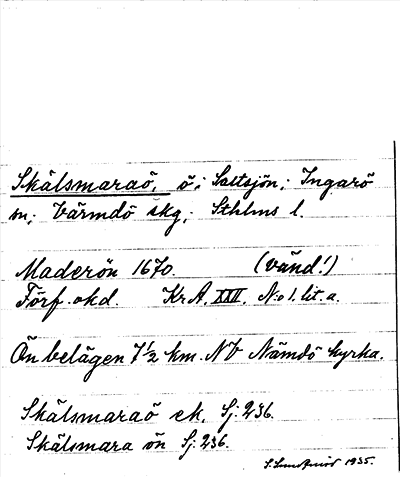 Skälsmaraö, ö i Saltsjön; Ingarö
sn; Värmdö skg, Sthlms l.
Maderön 1670. (vänd!)
Förf. okd. Kr A, XXII, No 1. lit. a.
Ön belägen 7 1/2 km. NV Nämdö kyrka.
Skälsmaraö ek. Sj. 236.
Skälsmara ön Sj. 236.
1935.